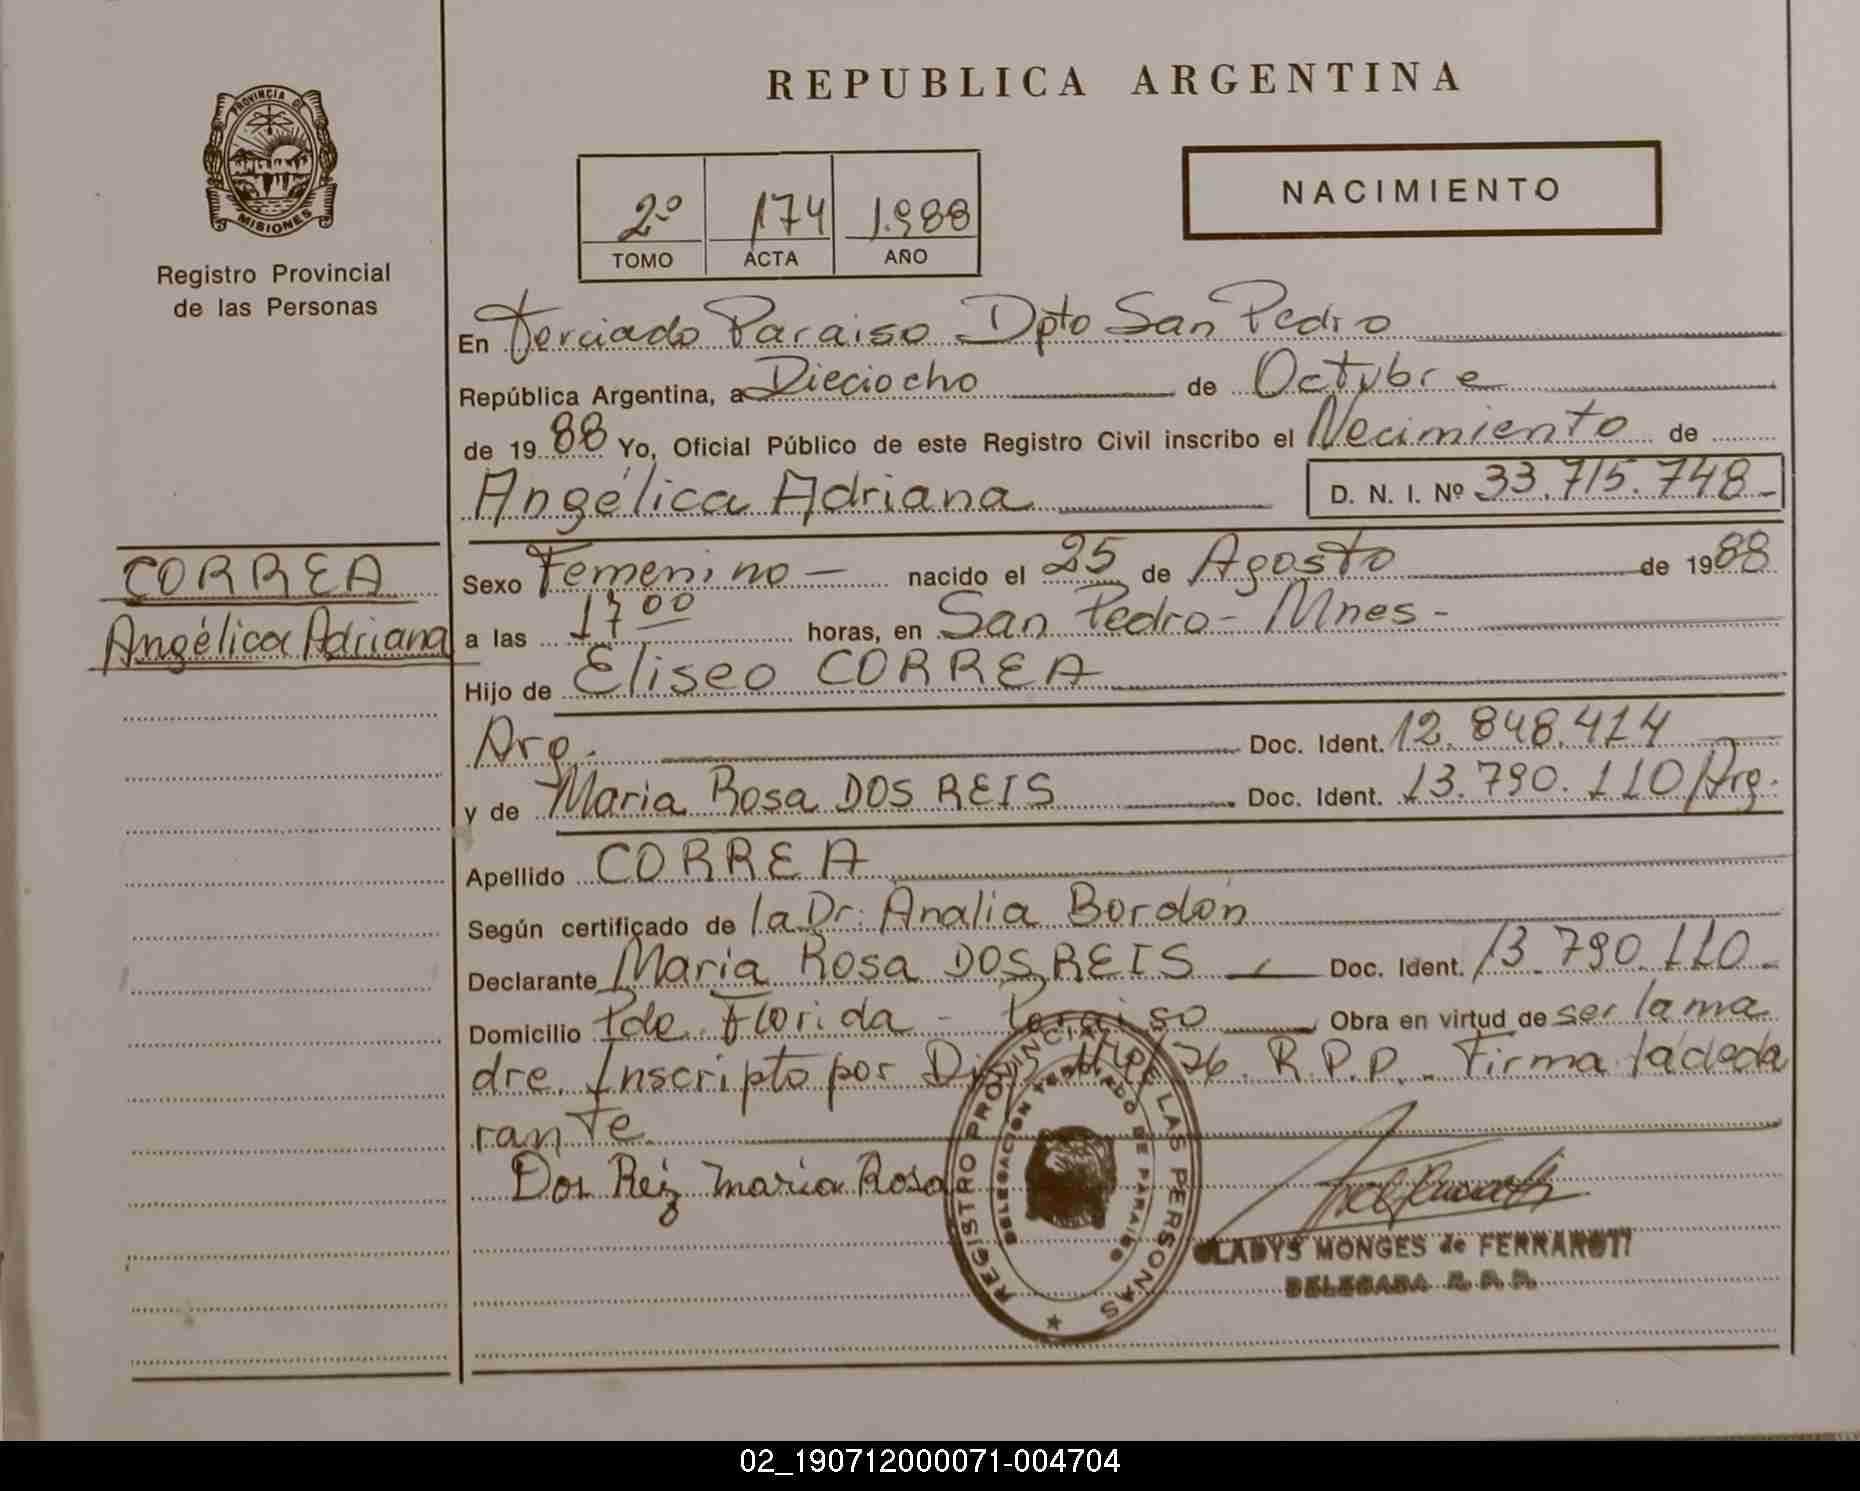 REPUBLICA ARGENTINA
PROVINCIA DE
MISIONES
Registro Provincial
de las Personas
2º 174 1.988
TOMO ACTA AÑO
NACIMIENTO
En Terciado Paraiso Dpto San Pedro
República Argentina, a Dieciocho de Octubre
de 19 88 Yo, Oficial Público de este Registro Civil inscribo el Nacimiento de
Angélica Adriana D. N. I. Nº 33.715.748-
CORREA
Angélica Adriana
Sexo Femenino nacido el 25 de Agosto de 1988
a las 17 00 horas, en San Pedro - Mnes -
Hijo de Eliseo CORREA
Arg. Doc. Ident. 12.848.414
y de Maria Rosa DOS REIS Doc. Ident. 13.790.110/Arg.
Apellido CORREA
Según certificado de la Dr. Analia Bordón
Declarante Maria Rosa DOS REIS Doc. Ident. 13.790.110-
Domicilio Pde. Florida - Paraiso Obra en virtud de ser la ma
dre. Inscripto por 76. R.P.P. - Firma la decla
rante
Dos Reiz maria Rosa
REGISTRO PROVINCIAL DE LAS PERSONAS
DELEGACION TERCIADO DE PARAISO
GLADYS MONGES de FERRAROTTI
DELEGADA R. P. P.
02_190712000071-004704